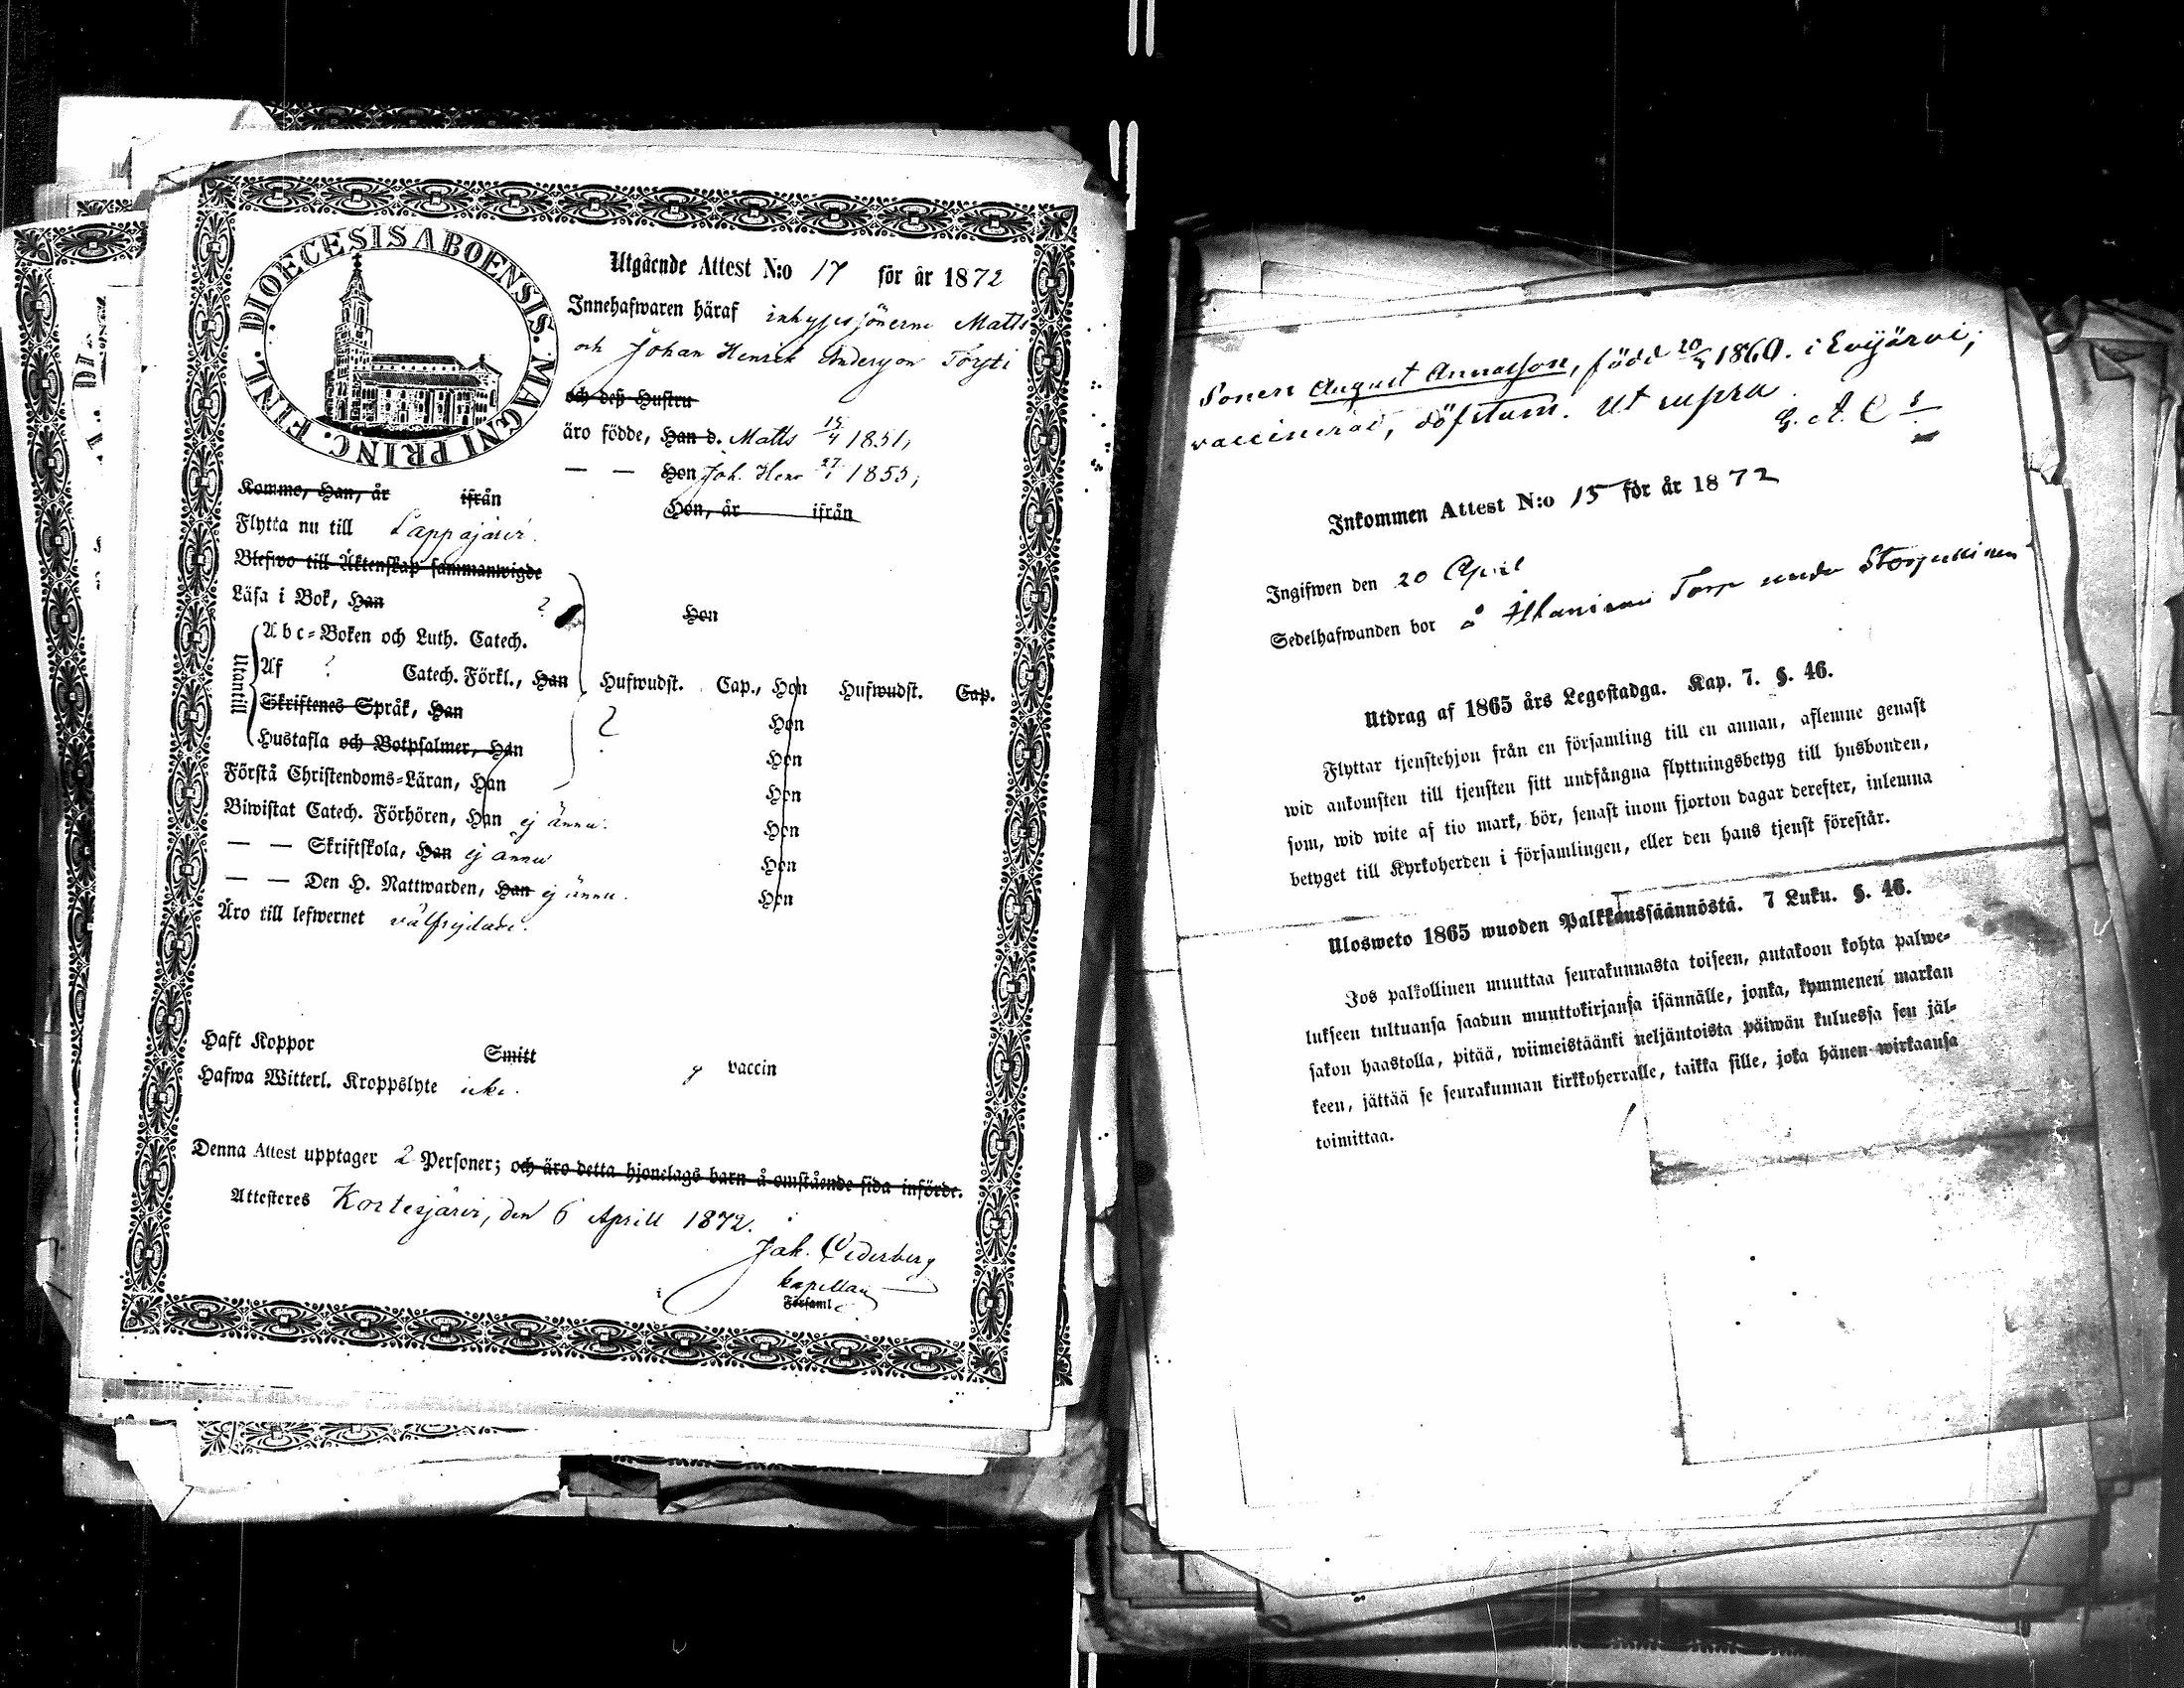 DIOECESIS ABOENSIS. MAGNI PRINC. FINL.
Utgående Attest N:o 17 för år 1872
Innehafwaren häraf inhysessönerne Matts
och Johan Henrik Andersson Törsti
och deß Hustru
äro födde, Han d. Matts 15/4 1851,
— — Hon Joh. Henr 27/1 1855,
Komme, Han, år ifrån Hon, år ifrån
Flytta nu till Lappajärvi.
Blefwo till Äktenskap sammanwigde
Läsa i Bok, Han ? Hon
Utantill
Abc-Boken och Luth. Catech.
Af ? Catech. Förkl., Han Hufwudst. Cap., Hon Hufwudst. Cap.
Skriftenes Språk, Han ? Hon
Hustafla och Botpsalmer, Han Hon
Förstå Christendoms-Läran, Han Hon
Biwistat Catech. Förhören, Han ej ännu. Hon
— — Skriftskola, Han ej ännu Hon
— — Den H. Nattwarden, Han ej ännu. Hon
Äro till lefwernet välfrejdade.
Haft Koppor Smitt vaccin
Hafwa Witterl. Kroppslyte icke.
Denna Attest upptager 2 Personer; och äro detta hjonelags barn å omstående sida införde.
Attesteres Kortesjärvi, den 6 Aprill 1872.
Jak. Cederberg
kapellan
Församl
Sonen August Annasson, född 20/ 1860. i Evijärvi;
vaccinerad, döfstum. Ut supra
G. A. C
Inkommen Attest N:o 15 för år 1872
Ingifwen den 20 April
Sedelhafwanden bor å Torp under
Utdrag af 1865 års Legostadga. Kap. 7. §. 46.
Flyttar tjenstehjon från en församling till en annan, aflemne genast
wid ankomsten till tjensten sitt undfångna flyttningsbetyg till husbonden,
som, wid wite af tio mark, bör, senast inom fjorton dagar derefter, inlemna
betyget till Kyrkoherden i församlingen, eller den hans tjenst förestår.
Ulosweto 1865 wuoden Palkkaussäännöstä. 7 Luku. §. 46.
Jos palkollinen muuttaa seurakunnasta toiseen, antakoon kohta palwe-
lukseen tultuansa saadun muuttokirjansa isännälle, jonka, kymmenen markan
sakon haastolla, pitää, wiimeistäänki neljäntoista päiwän kuluessa sen jäl-
keen, jättää se seurakunnan kirkkoherralle, taikka sille, joka hänen wirkaansa
toimittaa.